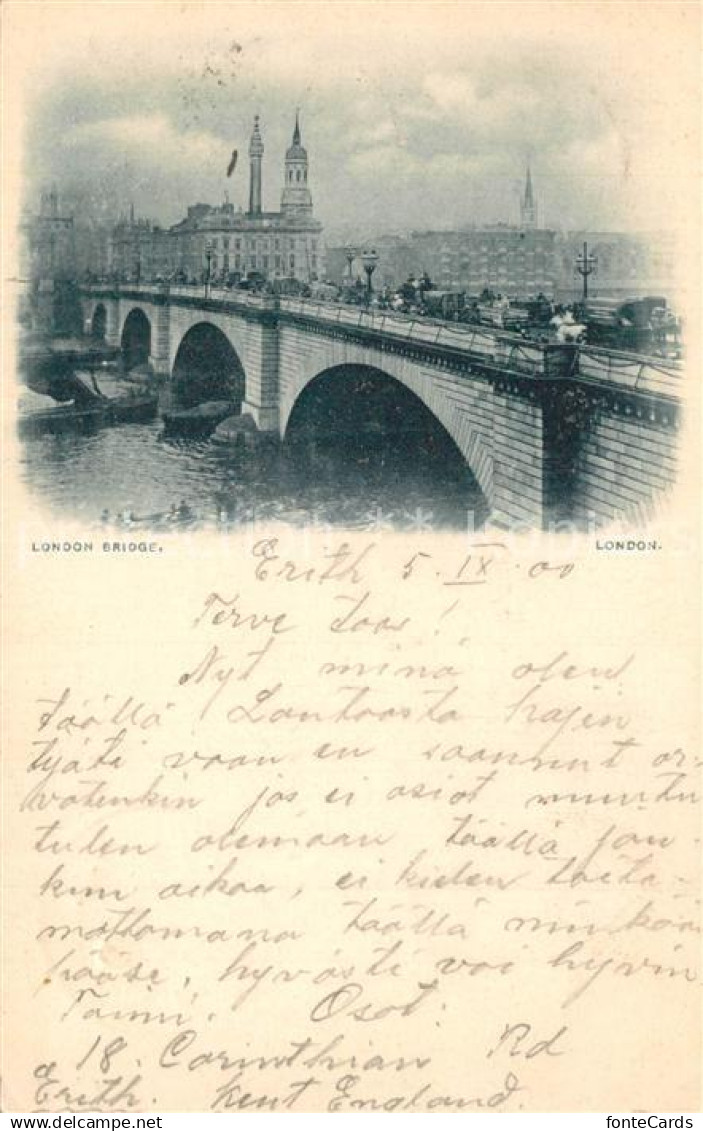 LONDON BRIDGE. LONDON.
Erith 5. IX. 00
Terve taas!
Nyt minä olen
täällä Lontoosta hajin
työtä vaan en saannut ar-
vatenkin jos ei asiat muutu
tulen olemaan täällä jon-
kun aikaa, ei kielen taita-
mattomana täällä minkään
pääse, hyvästi voi hyvin
Toimi. Osot:
18. Corinthian Rd
Erith. Kent England.
fonteCards